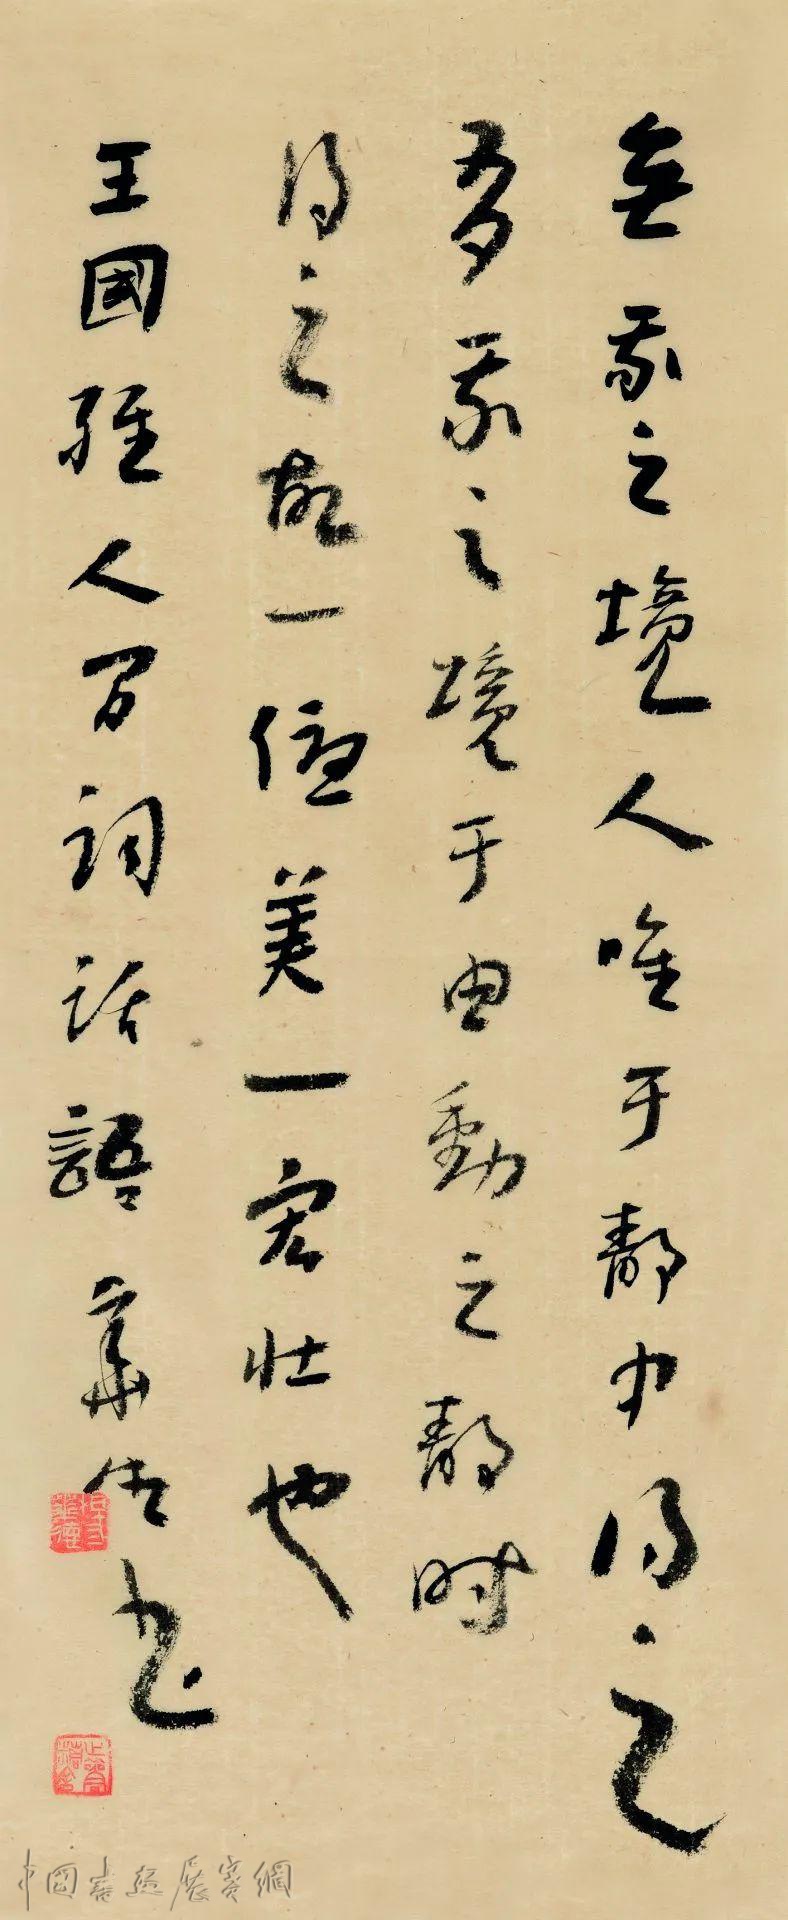 無我之境人唯于靜中得之
有我之境于由動之靜时
得之故一優美一宏壮也
王國維人间词话語 華生书
中國書法展賽網